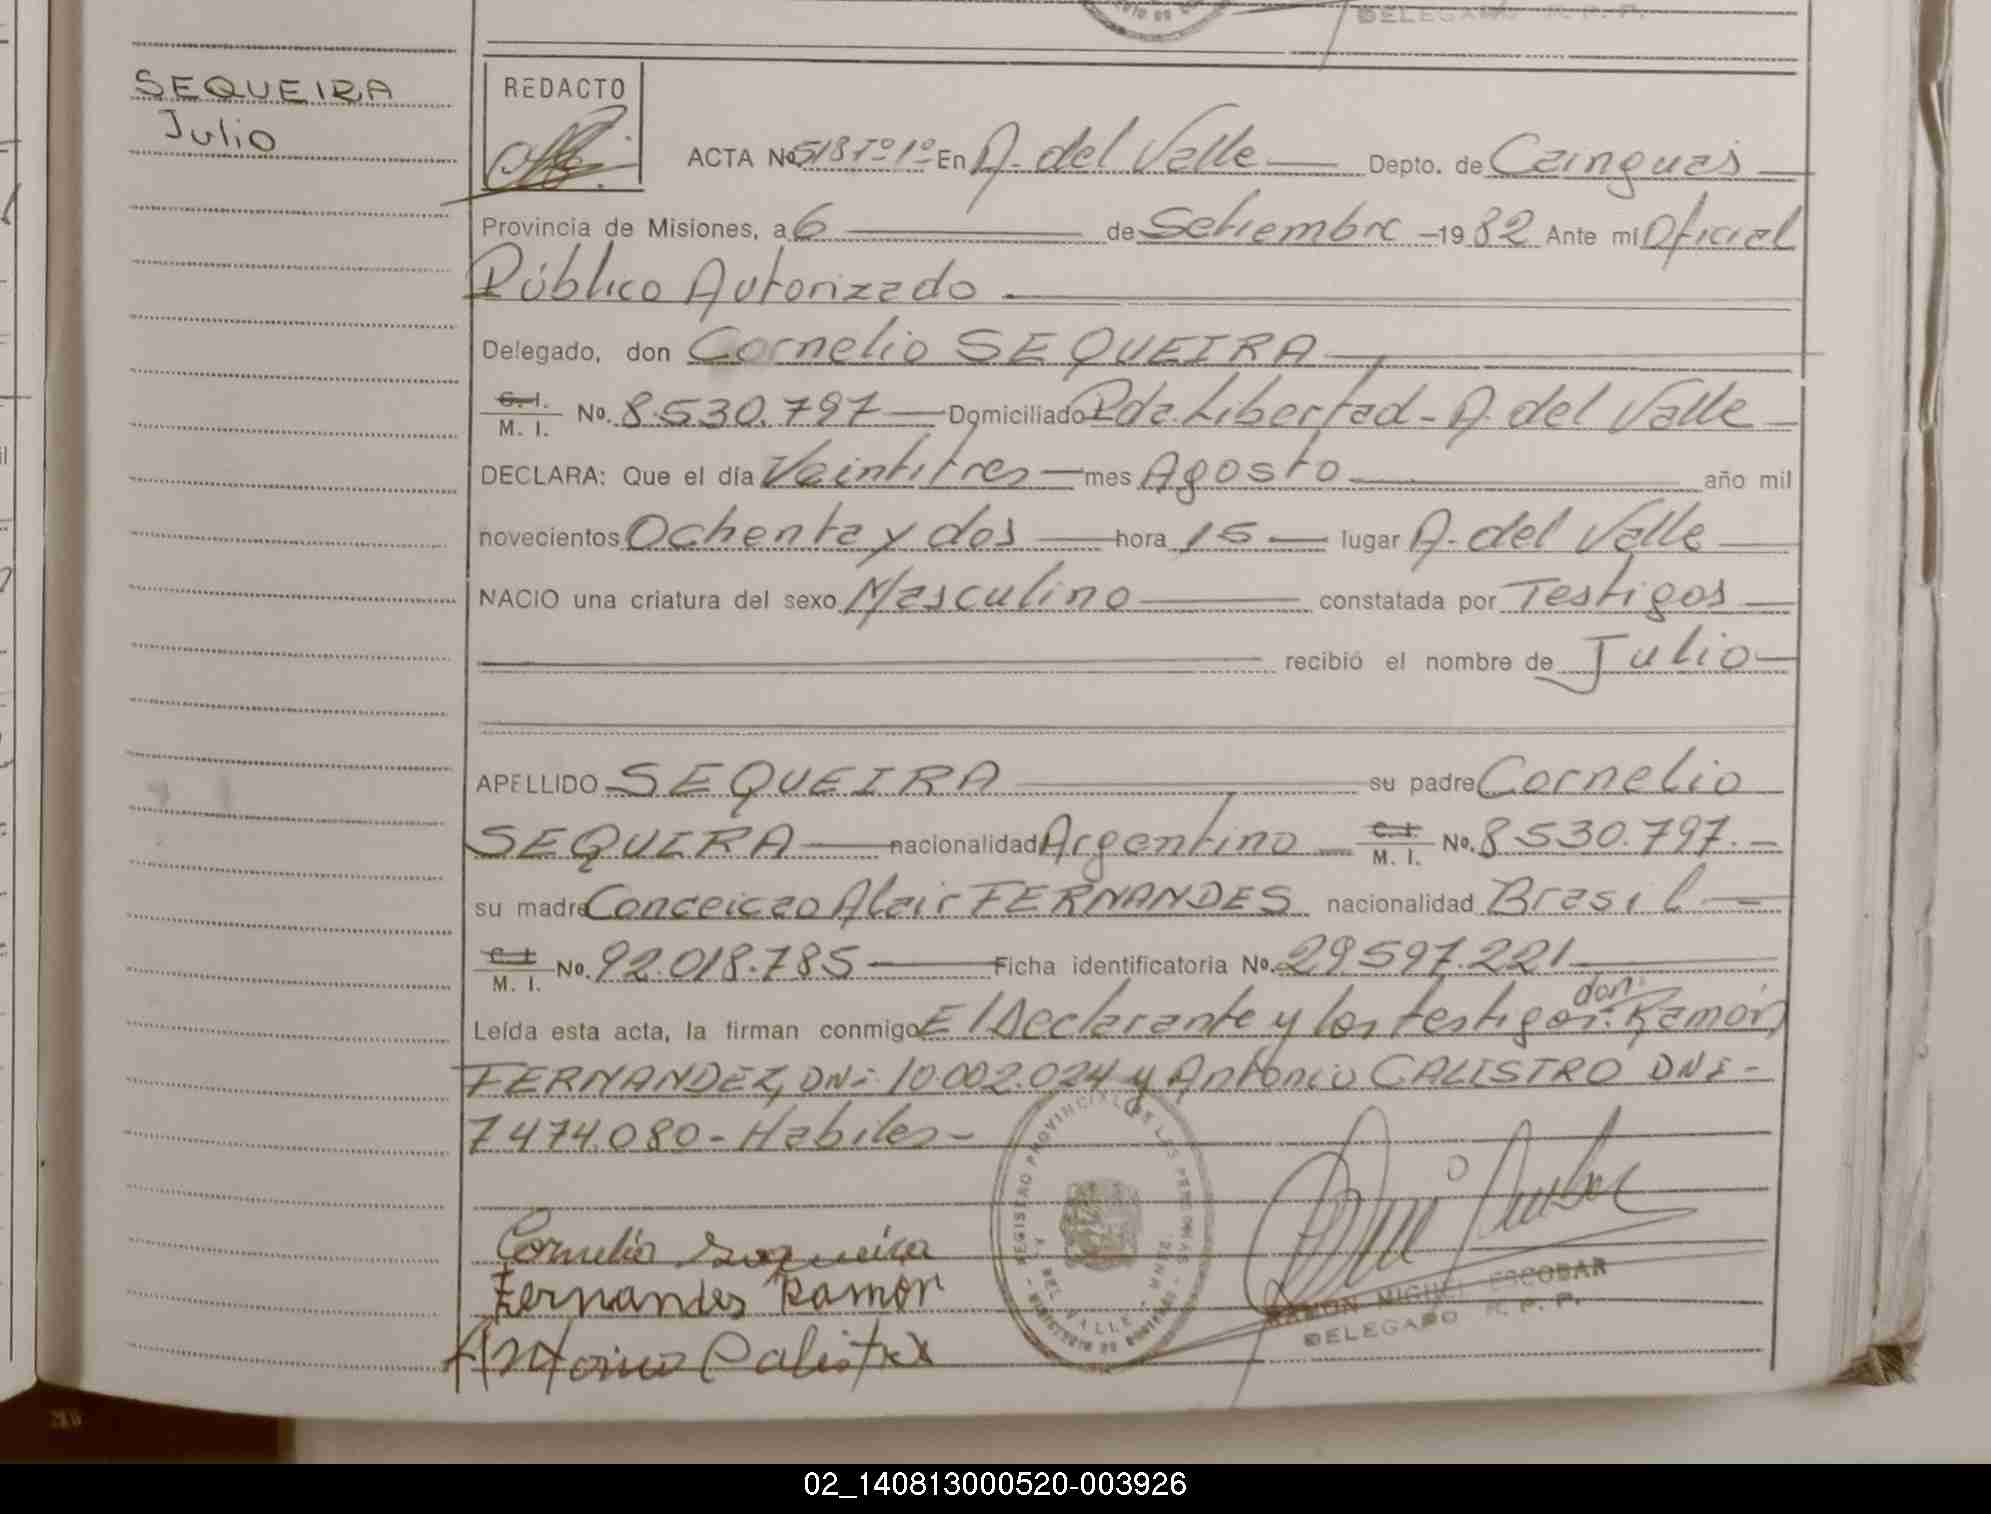 DELEGADO R. P. P.
SEQUEIRA
Julio
REDACTO
ACTA No 518 Tº 1º En A. del Valle Depto. de Cainguas
Provincia de Misiones, a 6 de Setiembre 1982 Ante mi Oficial
Público Autorizado
Delegado, don Cornelio SEQUEIRA
C. I. M. I. No. 8.530.797 Domiciliado Pda. Libertad - A. del Valle
DECLARA: Que el día Veintitres mes Agosto año mil
novecientos Ochenta y dos hora 15 lugar A. del Valle
NACIO una criatura del sexo Masculino constatada por Testigos
recibió el nombre de Julio
APELLIDO SEQUEIRA su padre Cornelio
SEQUEIRA nacionalidad Argentino C. I. M. I. No. 8.530.797.
su madre Conceicao Alair FERNANDES nacionalidad Brasil
C. I. M. I. No. 92.018.785 Ficha identificatoria No. 29.597.221
Leída esta acta, la firman conmigo El Declarante y los testigos: don: Ramón
FERNANDEZ, DNI: 10.002.024 y Antonio CALISTRO DNI-
7.474.080 - Habiles -
REGISTRO PROVINCIAL DE LAS PERSONAS
A. DEL VALLE
MINISTERIO DE GOBIERNO
Cornelio Sequeira
Fernandes Ramon
Antonio Calistro
RAMON MIGUEL ESCOBAR
DELEGADO R. P. P.
02_140813000520-003926